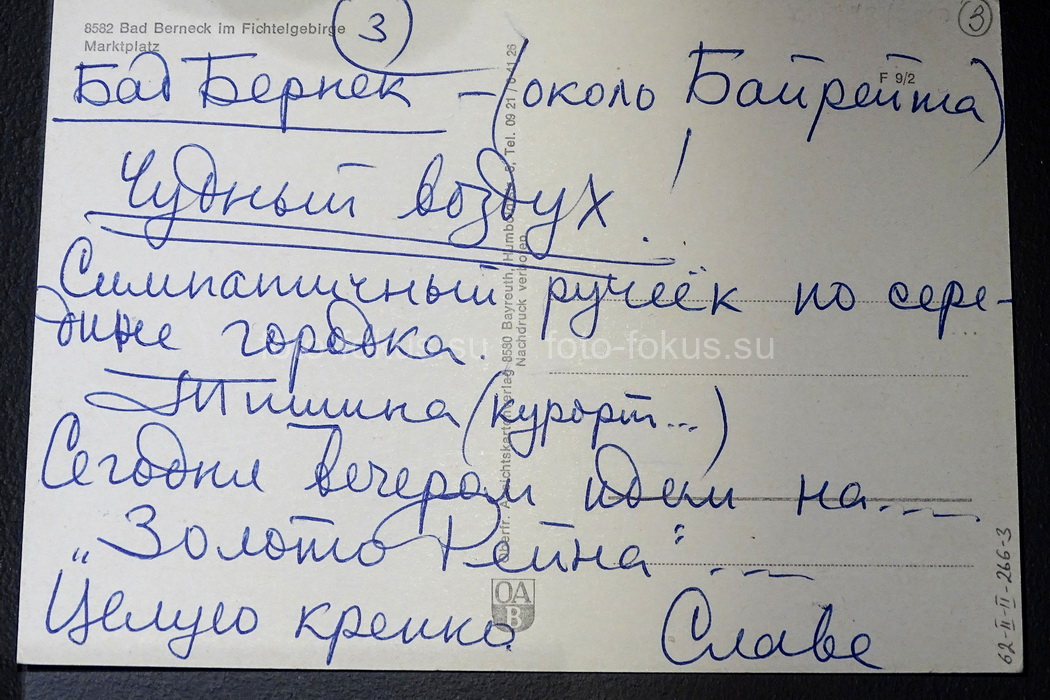 8582 Bad Berneck im Fichtelgebirge
Marktplatz
3
3
F 9/2
Бад Бернек – (около Байрейта)
Чудный воздух!
Симпатичный ручеёк по сере-
дине городка.
Тишина (курорт...)
Сегодня вечером идем на...
„Золото Рейна"...
Целую крепко
Слава
Oberfr. Ansichtskartenverlag 8580 Bayreuth, Tel. 09 21 /
Nachdruck verboten
OA
B
foto-fokus.su
62-II-II-266-3